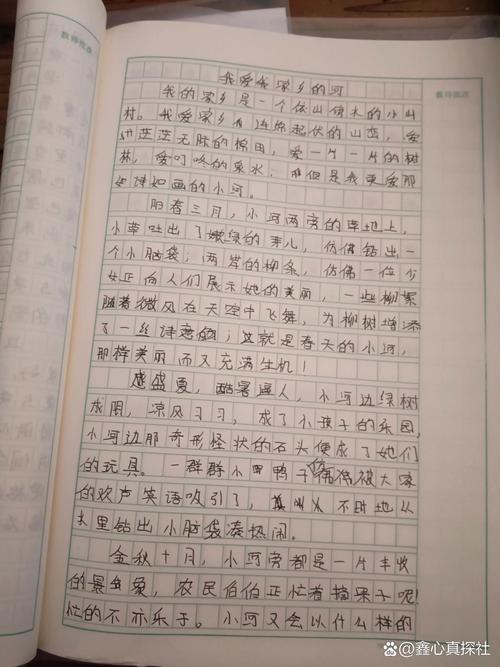 教师批改
教师批改
我爱我家乡的河
我的家乡是一个依山傍水的小山
村。我爱家乡有连绵起伏的山峦,爱
茫茫无际的棉田,爱一片一片的树
林,爱叮咚的泉水,但是我更爱那
如诗如画的小河。
阳春三月,小河两旁的草地上,
小草吐出了嫩绿的芽儿,仿佛钻出一
个小脑袋,两岸的柳条,仿佛一位少
女正向人们展示她的美丽,一些柳絮
随着微风在天空中飞舞,为柳树增添
了一丝诗意的;这就是春天的小河,
那样美丽而又充满生机!
盛夏,酷暑逼人,小河边绿树
成阴,凉风习习,成了小孩子的乐园,
小河边那奇形怪状的石头便成了她们
的玩具。一群群小鸭子偶偶被大家
的欢声笑语吸引了,不时地从
水里钻出小脑袋凑热闹。
金秋十月,小河旁都是一片丰收
的景象,农民伯伯正忙着摘果子呢!
忙的不亦乐乎。小河又会以什么样的
@鑫心真探社